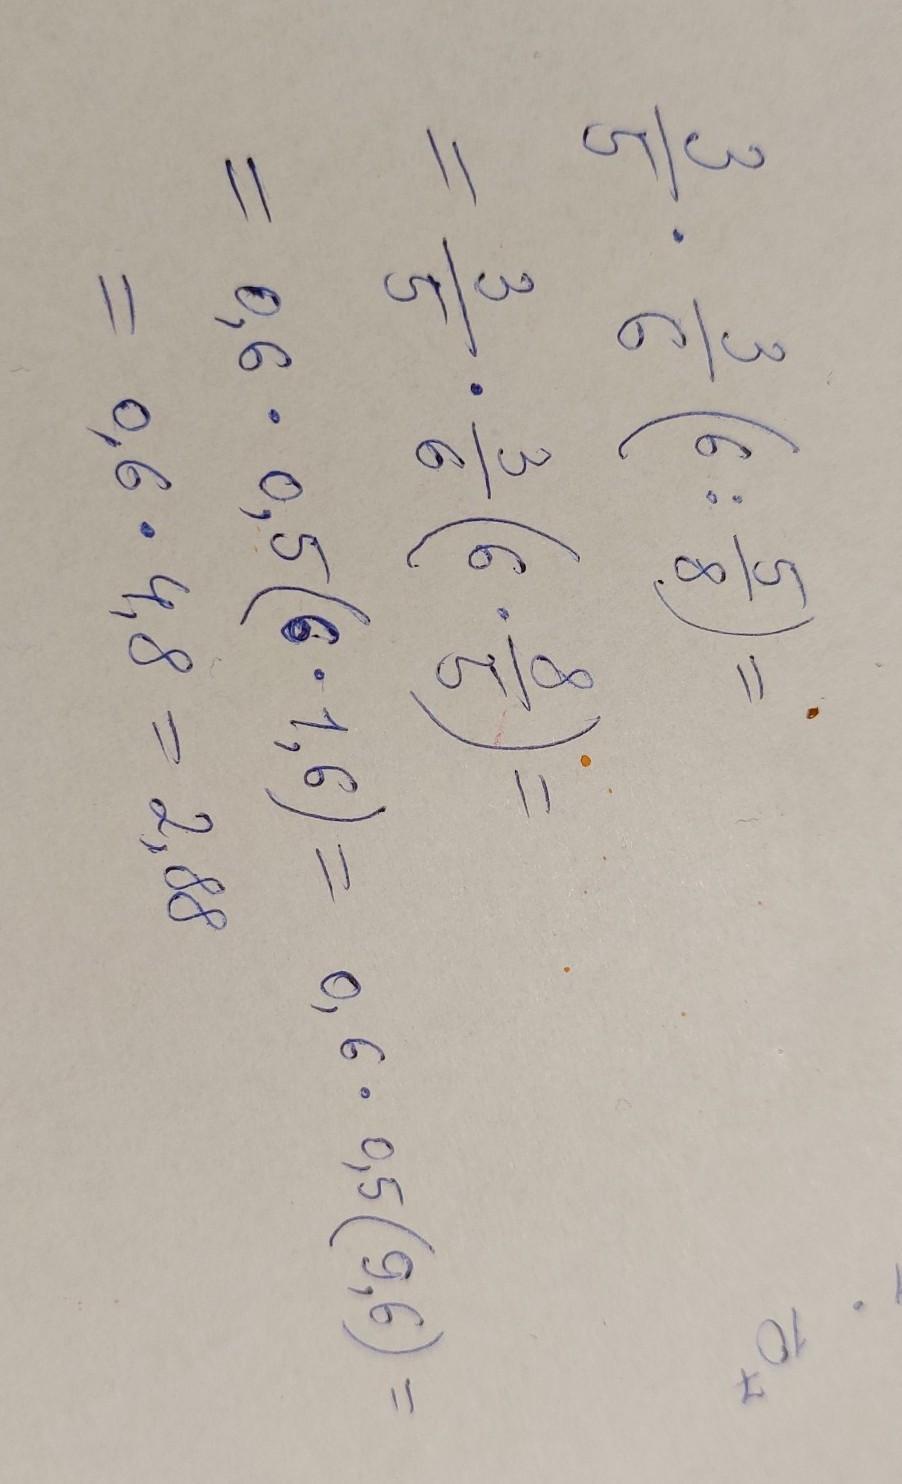 3/5 · 3/6 (6 : 5/8) =
= 3/5 · 3/6 (6 · 8/5) =
= 0,6 · 0,5(6 · 1,6) = 0,6 · 0,5(9,6) =
= 0,6 · 4,8 = 2,88